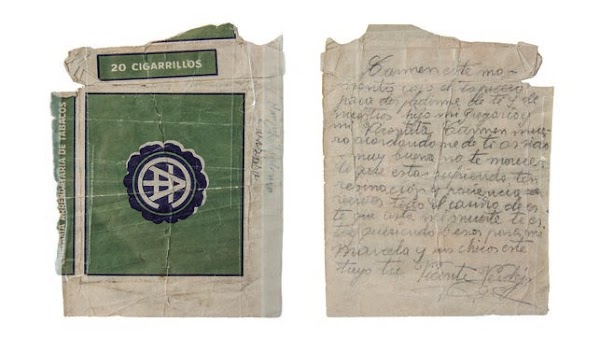 20 CIGARRILLOS
ARRENDATARIA DE TABACOS
Carmen este mo-
mento cojo el lapicero
para de pedirme de ti y de
nuestros hijo mi Gregorio y
mi Carmen mue-
ro acordandome de ti as sido
muy buena no te
que estas sufriendo ten
resinacion y paciencia
todo el cariño de es
te que asta mi muerte te es
ta queriendo besos para mi
Marcela y mis chicos este
tuyo Vicente